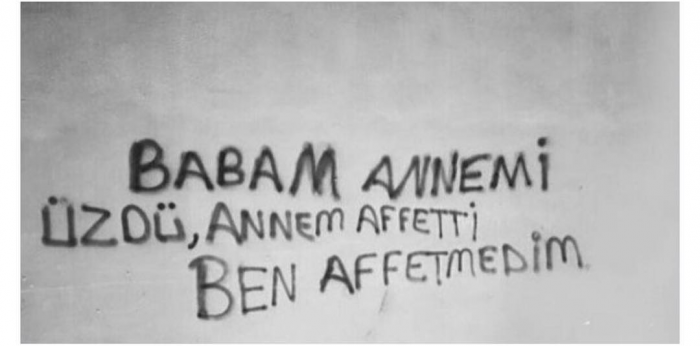 BABAM ANNEMİ
ÜZDÜ, ANNEM AFFETTİ
BEN AFFETMEDİM